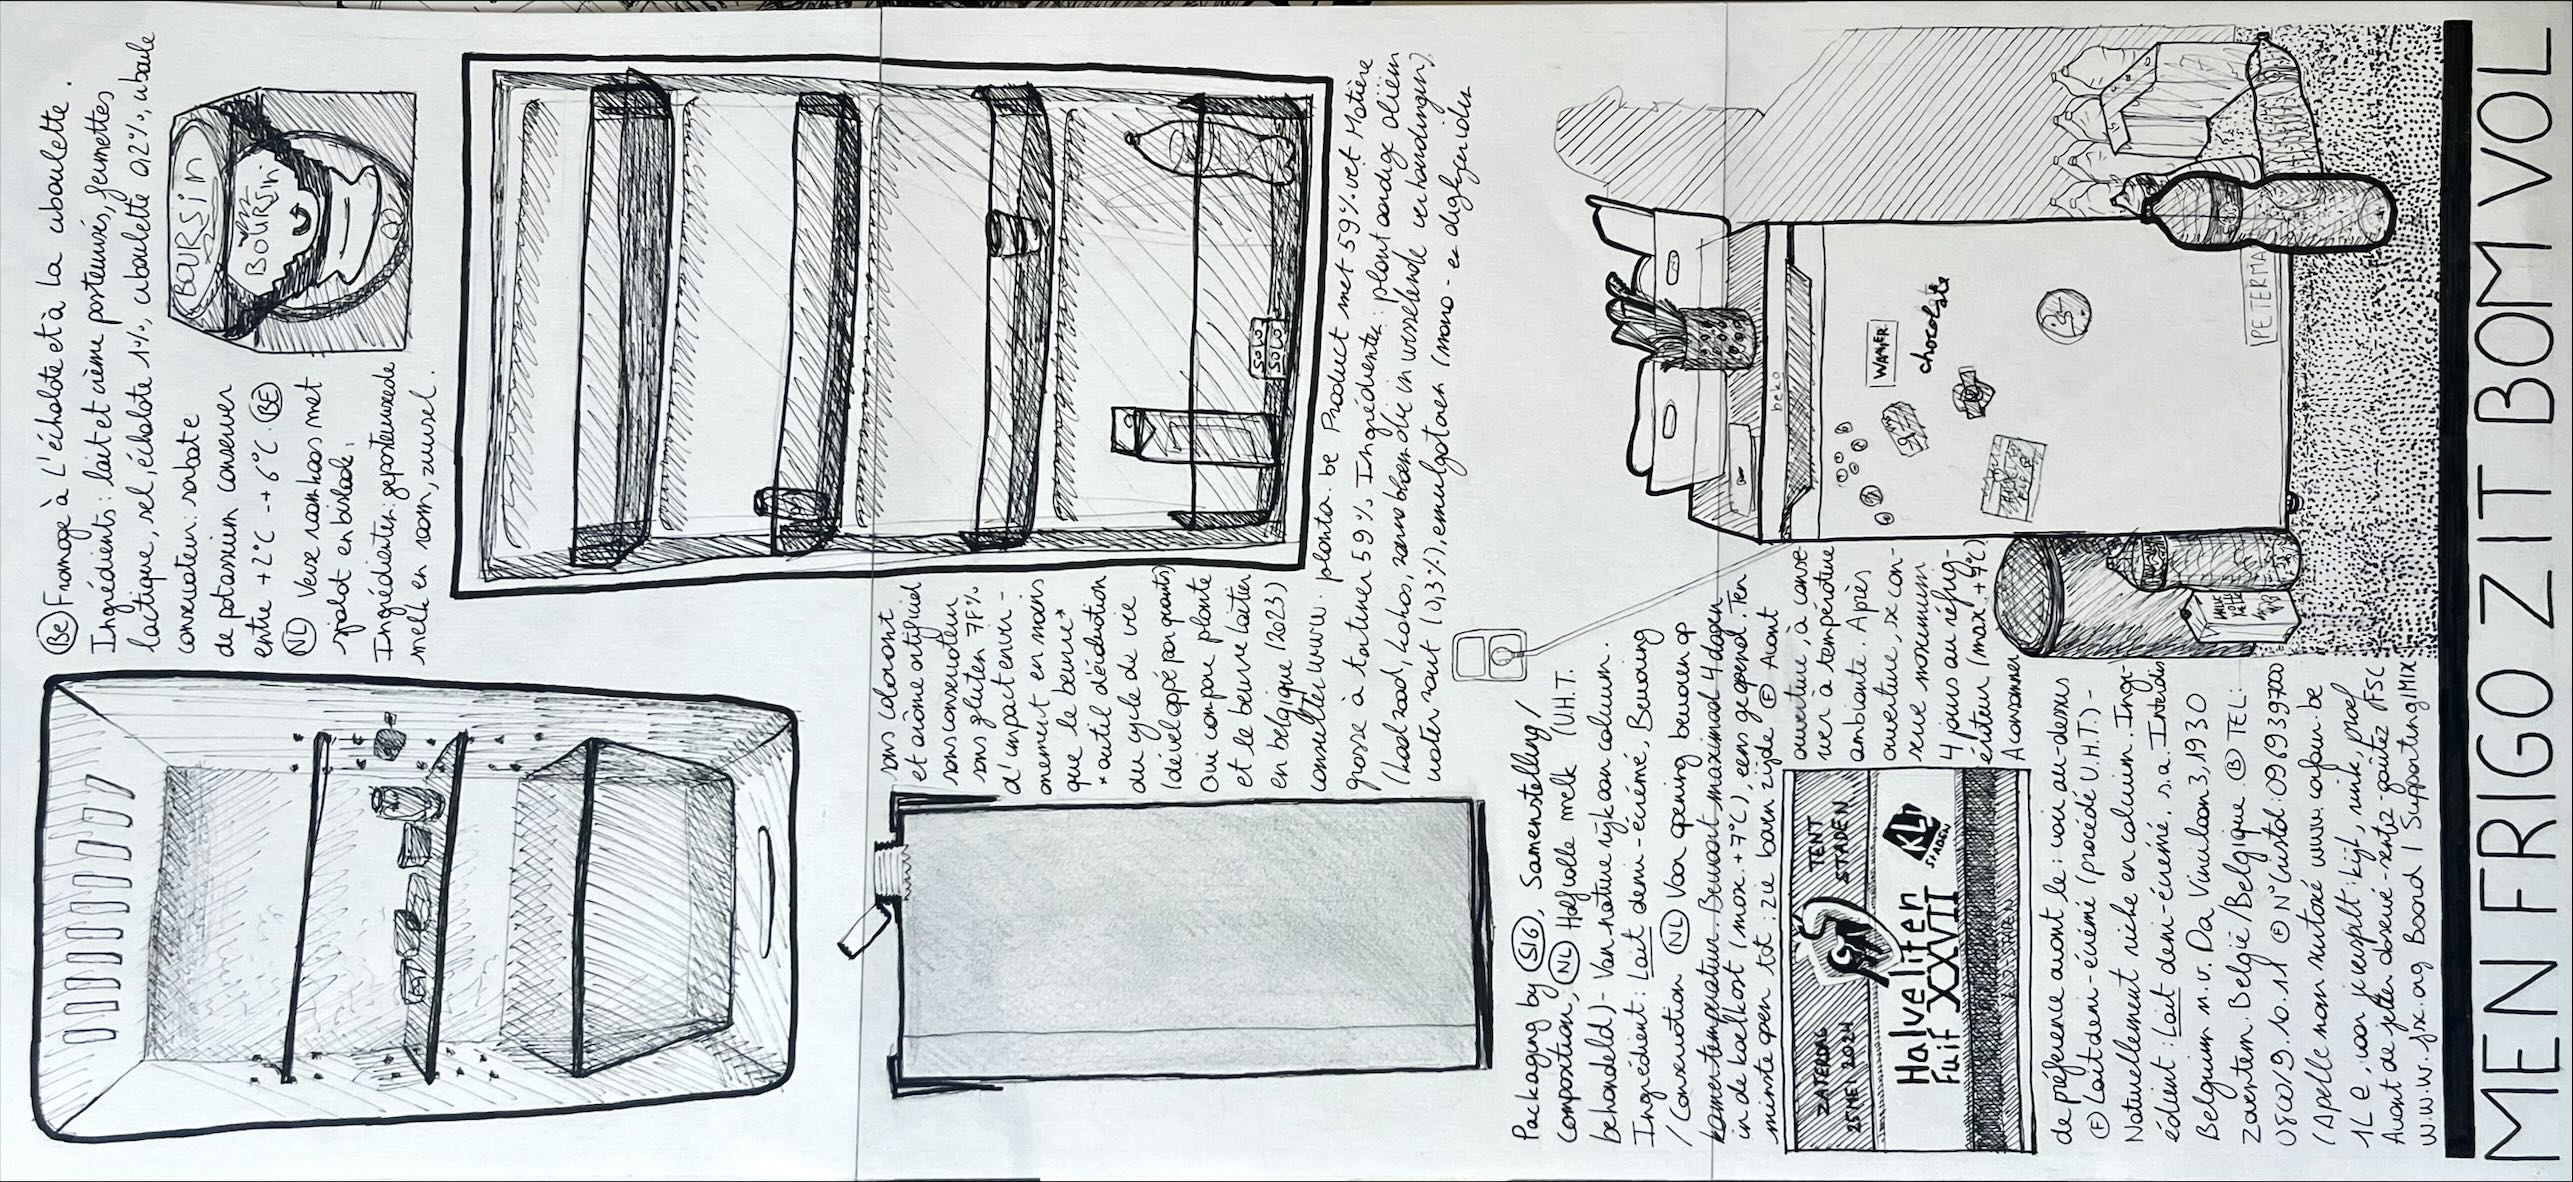 (Be) Fromage à L'échalote et à La ciboulette.
Ingrédients: lait et crème pasteurisés, fermettes
lactique, sel, échalote 1%, ciboulette 0,2%, uboule
conservateur: sorbate
de potassium conserver
entre +2°C -+6°C. (BE)
(NL) Verse roomkaas met
sjalot en bislook,
Ingrédienten: gepasteuriseerde
melk en room, zuursel.
BOURSIN
BOURSIN
sans colorant
et arôme artificiel
sans conservateur
sans gluten 78%
d'impact envir-
onement en moins
que le beurre*
*outil d'évaluation
du cycle de vie
(développé par quantis)
Qui compare planta
et le beurre laitier
en belgique (2023)
consulter www. planta.be Product met 59% vet Matière
grasse à tartiner 59% Ingrédienten: plantaardige oliën
(koolzaad, kokos, zonnebloem die in wisselende verhoudingen),
water zout (0,3%), emulgatoren (mono- en diglyceriden
SOLO
SOLO
Packaging by (SIG), Samenstelling/
Composition, (NL) Halfvolle melk (U.H.T.
behandeld)- Van nature rijk aan calcium.
Ingrédient: Lait demi-écrémé, Bewaring
/Conservation (NL) Voor opening bewaren op
kamertemperatuur. Bewaart maximaal 4 dagen
in de koelkast (max. +7°C), eens geopend. Ten
minste open tot: zie boven zijde (F) Avant
ouverture, à conse-
ver à température
ambiante. Après
ouverture, se con-
serve maximum
4 jours au réfrig-
érateur (max. +7°C)
A consommer
ZATERDAG
25 MEI 2024
TENT
STADEN
Halveliter
Fuif XXVII
KLJ
STADEN
KLJ-STADEN
de préférence avant le: voir au-dessus
(F) Lait demi-écrémé (procédé U.H.T.)-
Naturellement riche en calcium. Ingr-
édient: Lait demi-écrémé. s.a. Interdis
Belgium n.v. Da Vincilaan 3, 1930
Zaventem. België/Belgique (B) TEL:
0800/9.10.11 (F) N°Cristal: 0969397000
(Apelle non surtaxé www.carfour.be
1L e, voor je verspilt: kijk, ruik, proef
Avant de jetter observé-sentez-goûtez FSC
w.w.w. fsc.org Board | Supporting|MIX
beko
WANNER
chocolate
HALVE
PETERMA
MEN FRIGO ZIT BOM VOL